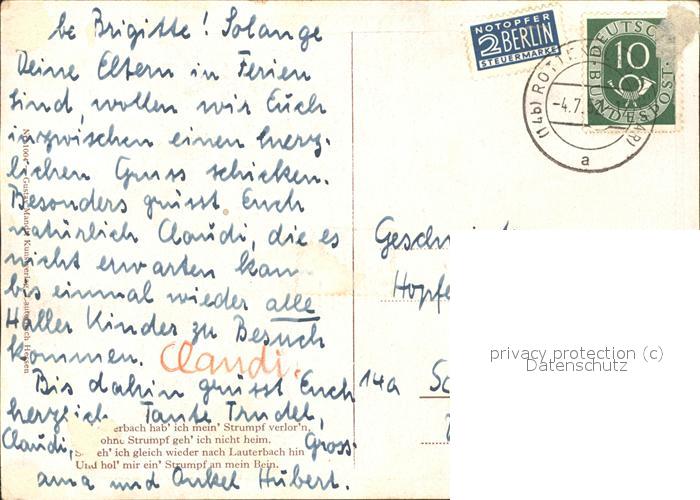 be Brigitte! Solange
Deine Eltern in Ferien
sind, wollen wir Euch
inzwischen einen herz-
lichen Gruss schicken.
Besonders grüsst Euch
natürlich Claudi, die es
nicht erwarten kan
bis einmal wieder alle
Haller Kinder zu Besuch
kommen. Claudi.
Bis dahin grüsst Euch
herzlich Tante Trudel,
Claudi, Gross-
ama und Onkel Hubert.
erbach hab' ich mein' Strumpf verlor'n,
ohne Strumpf geh' ich nicht heim.
eh' ich gleich wieder nach Lauterbach hin
Und hol' mir ein' Strumpf an mein Bein.
NOTOPFER
2 BERLIN
STEUERMARKE
DEUTSCHE
10
BUNDESPOST
(14b) ROTT
-4.7.
a
Hopfe
14a Sc
privacy protection (c)
Datenschutz